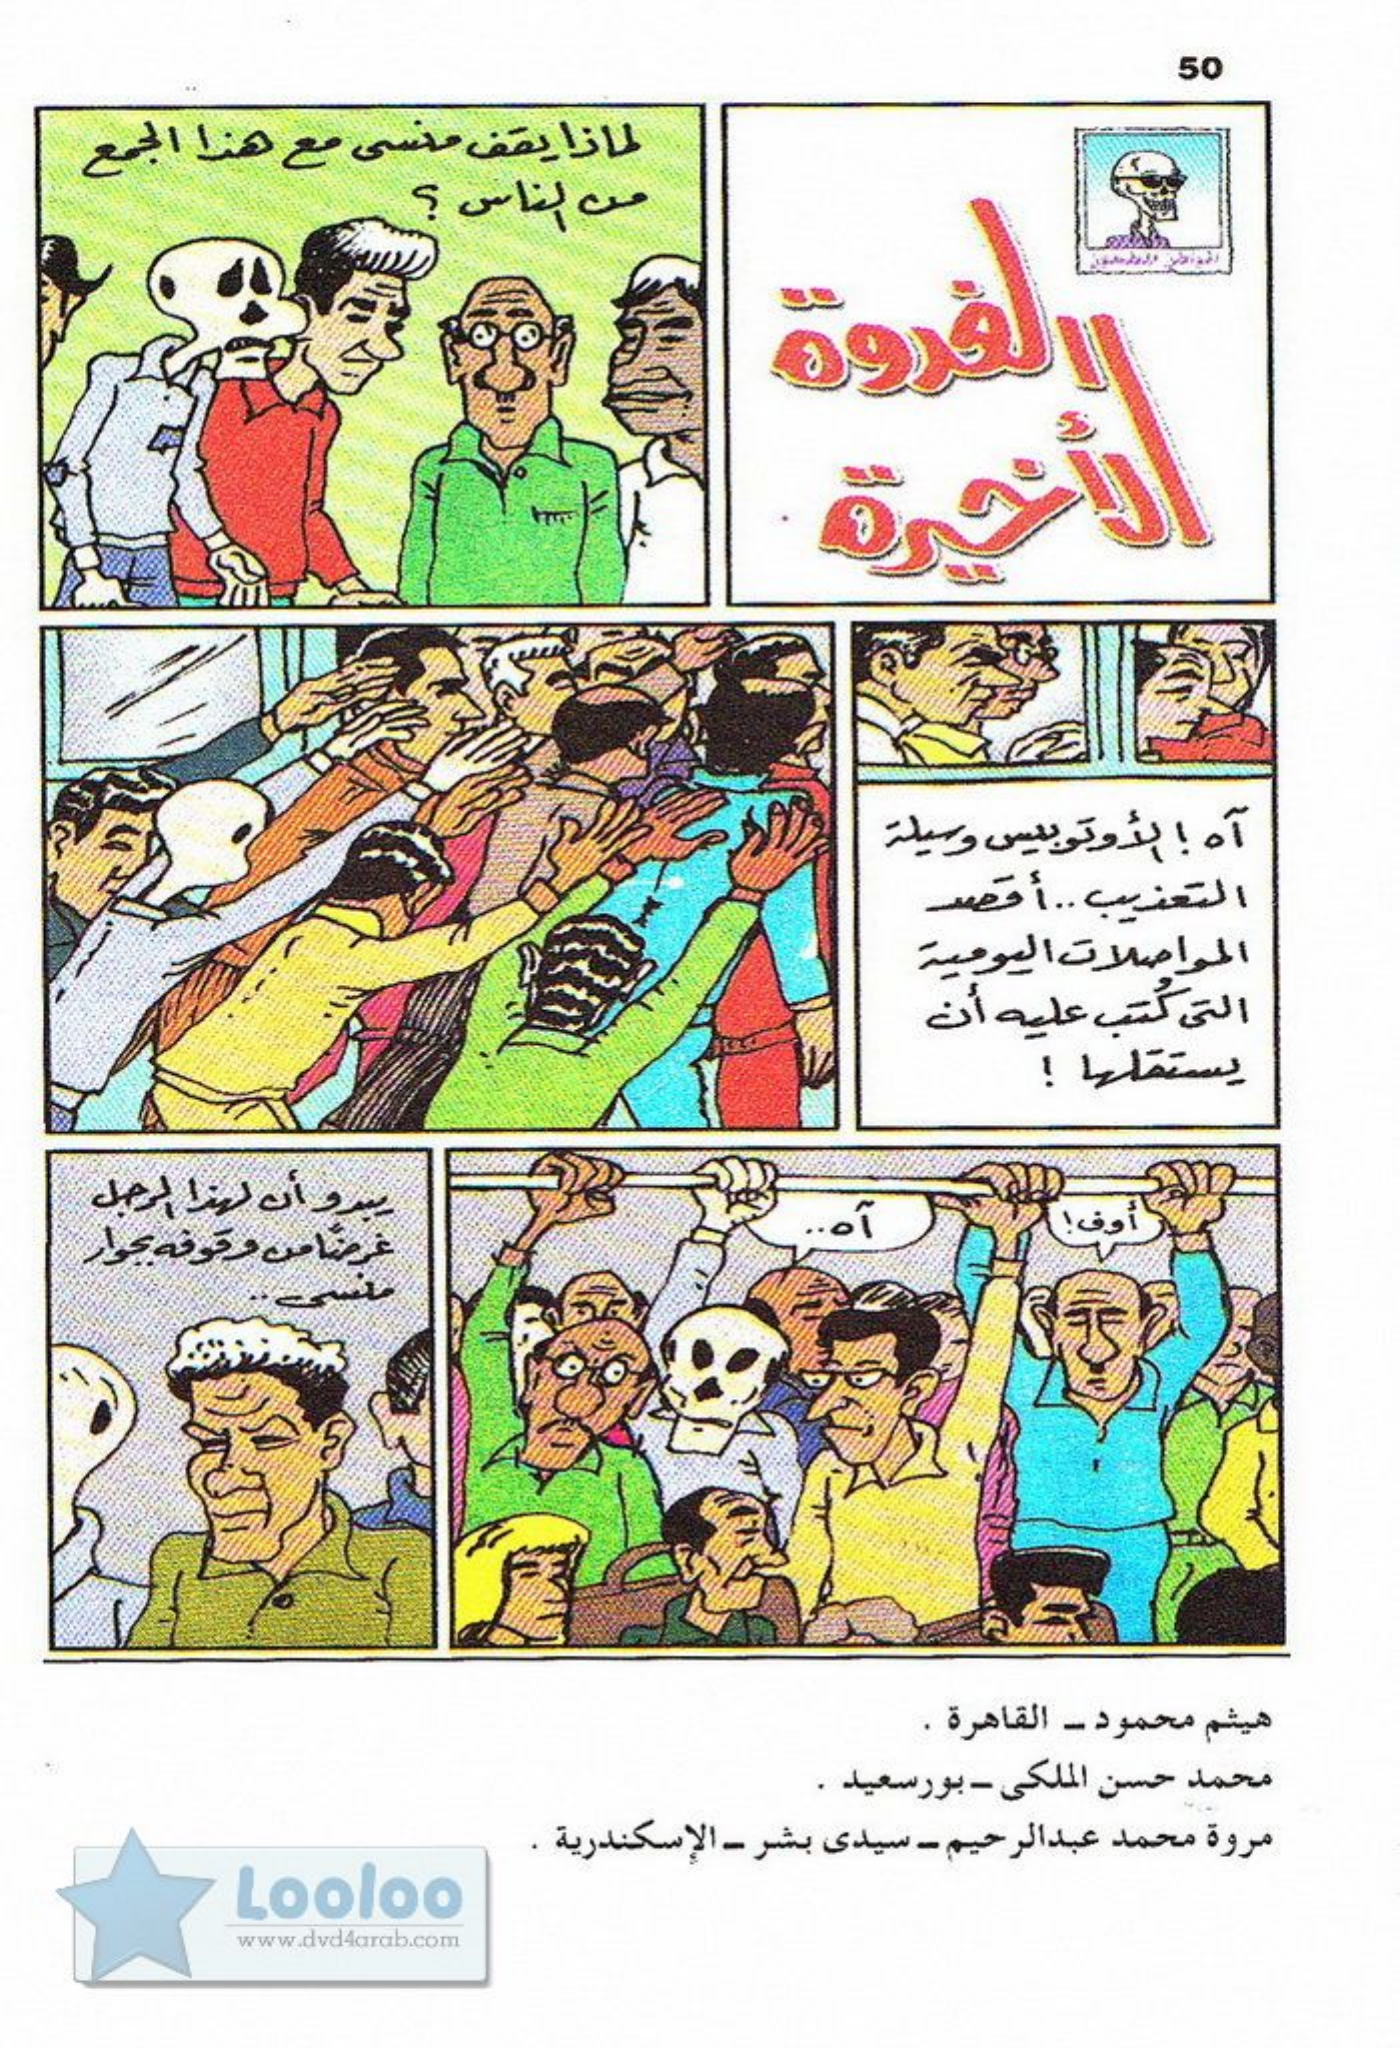 50
الفروة
الأخيرة
لماذا يقف منسى مع هذا الجمع
من الناس ؟
آه ! الأوتوبيس وسيلة
التعذيب .. أقصد
المواصلات اليومية
التى كُتب عليه أن
يستقلها !
أوف !
آه ..
يبدو أن لهذا الرجل
غرضًا من وقوفه بجوار
منسى ..
هيثم محمود ــ القاهرة .
محمد حسن الملكى ــ بورسعيد .
مروة محمد عبدالرحيم ــ سيدى بشر ــ الإسكندرية .
Looloo
www.dvd4arab.com